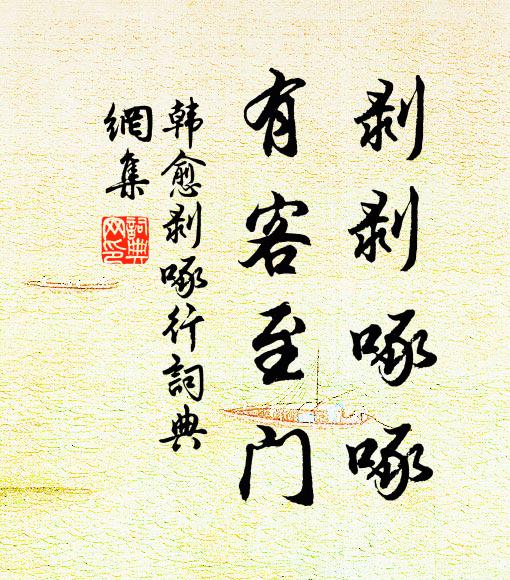 剥剥啄啄
有客至门
韩愈剥啄行词典
網集
詞典
网印